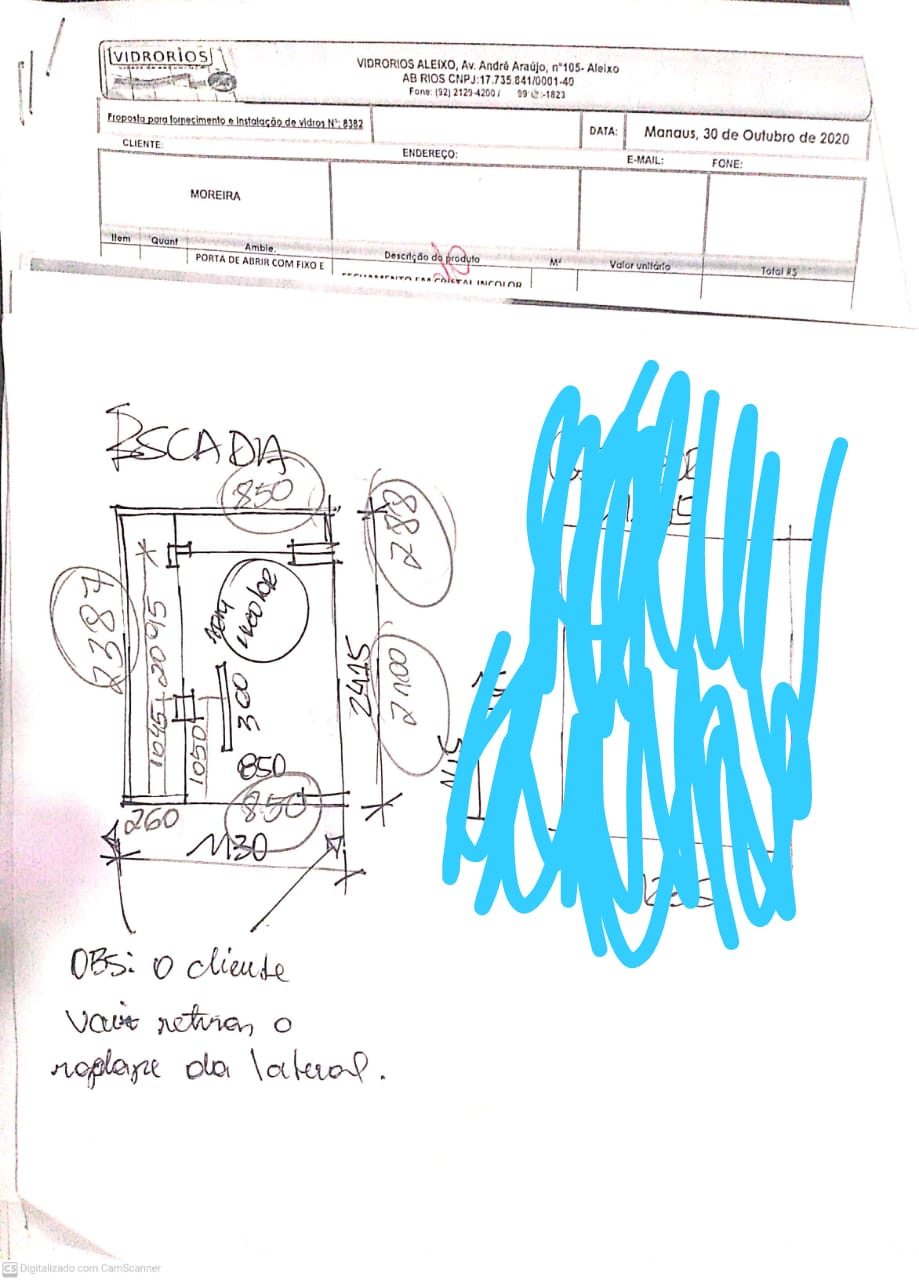 VIDRORIOS
VIDRORIOS ALEIXO, Av. André Araújo, nº105- Aleixo
AB RIOS CNPJ:17.735.841/0001-40
Fone: (92) 2129-4200 / 99 -1823
Proposta para fornecimento e instalação de vidros Nº: 8382
DATA:
Manaus, 30 de Outubro de 2020
CLIENTE:
ENDEREÇO:
E-MAIL:
FONE:
MOREIRA
Item
Quant
Ambie.
Descrição do produto
M²
Valor unitário
Total R$
PORTA DE ABRIR COM FIXO E
CRISTAL INCOLOR
ESCADIA
850
288
2387
1045
2095
INCOLOR
1050
300
2415
2100
850
850
260
1130
OBS: O cliente
vai retirar o
rodape da lateral.
CS Digitalizado com CamScanner